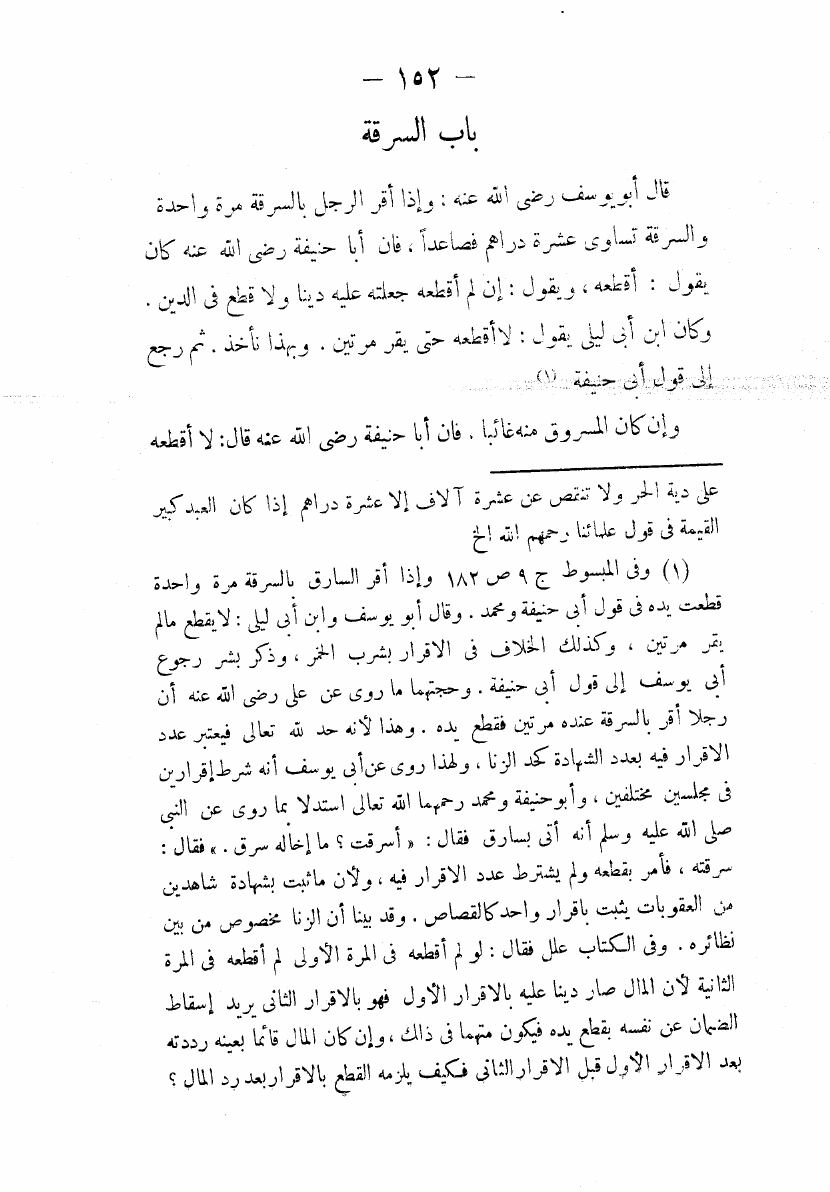 — ١٥٢ —
باب السرقة
قال أبو يوسف رضى الله عنه : وإذا أقر الرجل بالسرقة مرة واحدة
والسرقة تساوى عشرة دراهم فصاعداً ، فان أبا حنيفة رضى الله عنه كان
يقول : أقطعه ، ويقول : إن لم أقطعه جعلته عليه دينا ولا قطع فى الدين .
وكان ابن أبى ليلى يقول : لا أقطعه حتى يقر مرتين . وبهذا نأخذ . ثم رجع
إلى قول أبى حنيفة (١)
وإن كان المسروق منه غائبا . فان أبا حنيفة رضى الله عنه قال : لا أقطعه
على دية الحر ولا تنتقص عن عشرة آلاف إلا عشرة دراهم إذا كان العبد كبير
القيمة فى قول علمائنا رحمهم الله الخ
(١) وفى المبسوط ج ٩ ص ١٨٢ وإذا أقر السارق بالسرقة مرة واحدة
قطعت يده فى قول أبى حنيفة ومحمد . وقال أبو يوسف وابن أبى ليلى : لا يقطع مالم
يقر مرتين ، وكذلك الخلاف فى الاقرار بشرب الخمر ، وذكر بشر رجوع
أبى يوسف إلى قول أبى حنيفة . وحجتهما ما روى عن على رضى الله عنه أن
رجلا أقر بالسرقة عنده مرتين فقطع يده . وهذا لأنه حد لله تعالى فيعتبر عدد
الاقرار فيه بعدد الشهادة كحد الزنا ، ولهذا روى عن أبى يوسف أنه شرط إقرارين
فى مجلسين مختلفين ، وأبو حنيفة ومحمد رحمهما الله تعالى استدلا بما روى عن النبى
صلى الله عليه وسلم أنه أتى بسارق فقال : « أسرقت ؟ ما إخاله سرق . » فقال :
سرقته ، فأمر بقطعه ولم يشترط عدد الاقرار فيه ، ولأن ماثبت بشهادة شاهدين
من العقوبات يثبت باقرار واحد كالقصاص . وقد بينا أن الزنا مخصوص من بين
نظائره . وفى الكتاب علل فقال : لو لم أقطعه فى المرة الأولى لم أقطعه فى المرة
الثانية لأن المال صار دينا عليه بالاقرار الأول فهو بالاقرار الثانى يريد إسقاط
الضمان عن نفسه بقطع يده فيكون متهما فى ذلك ، وإن كان المال قائما بعينه رددته
بعد الاقرار الأول قبل الاقرار الثانى فكيف يلزمه القطع بالاقرار بعد رد المال ؟